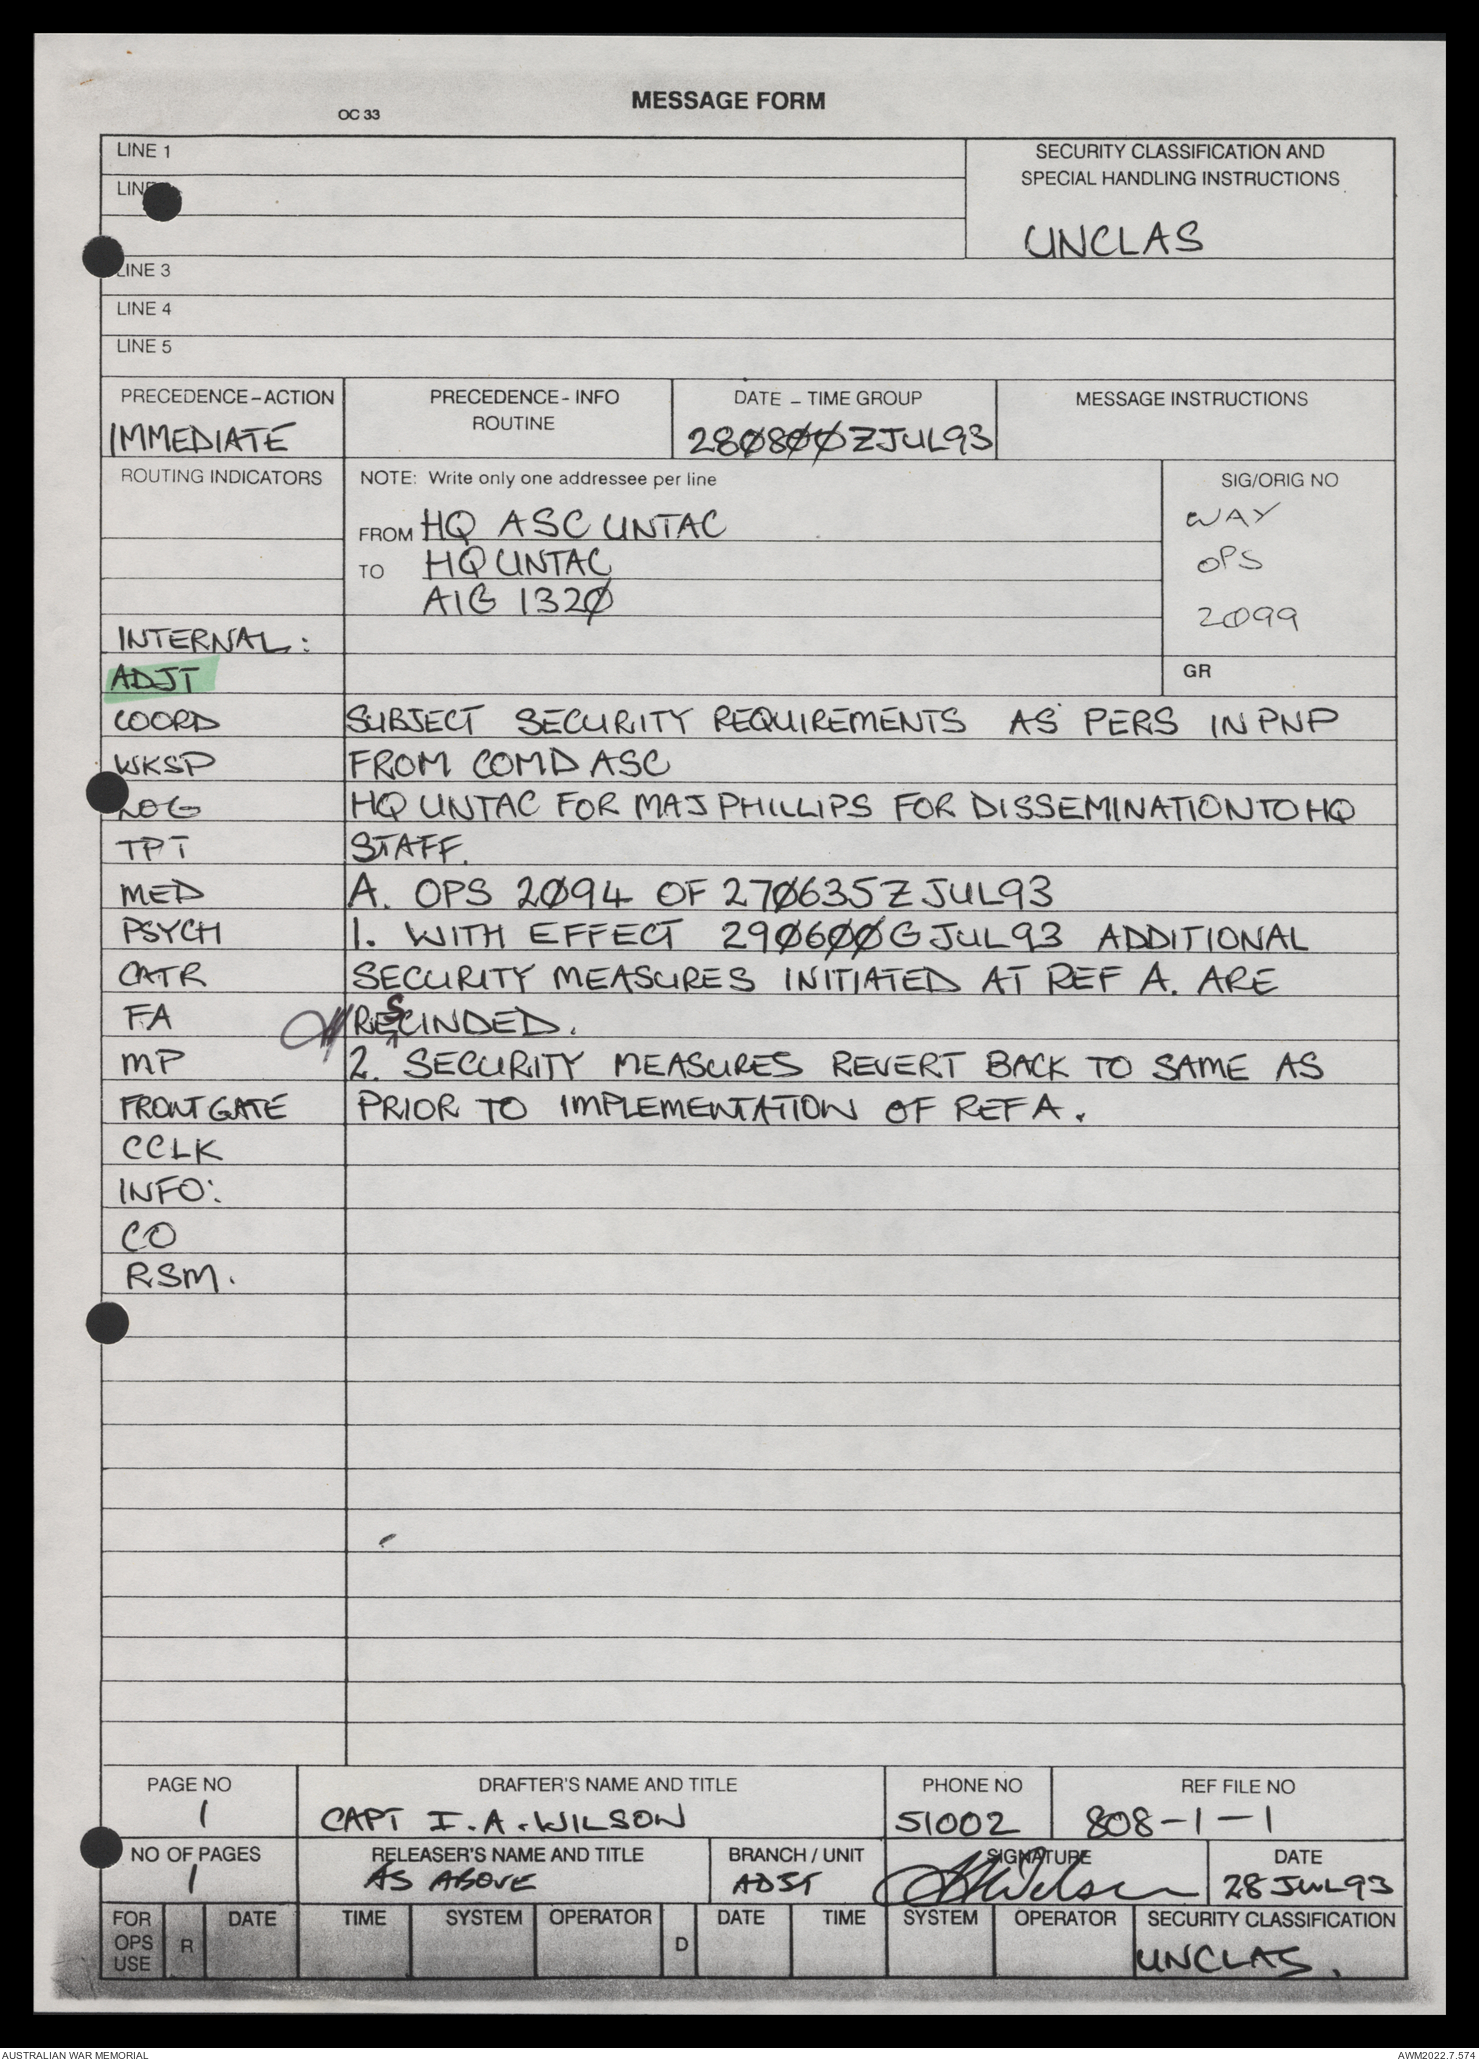 MESSAGE FORM
OC 33
LINE 1
SECURITY CLASSIFICATION AND
SPECIAL HANDLING INSTRUCTIONS
LINE
UNCLAS
LINE 3
LINE 4
LINE 5
PRECEDENCE-ACTION PRECEDENCE-INFO DATE - TIME GROUP MESSAGE INSTRUCTIONS
IMMEDIATE ROUTINE 280800ZJUL93
ROUTING INDICATORS NOTE: Write only one addressee per line SIG/ORIG NO
WAY
FROM HQ ASC UNTAC
TO HQ UNTAC OPS
AIG 1320 2099
INTERNAL:
ADJT GR
COORD SUBJECT SECURITY REQUIREMENTS AS PERS IN PNP
WKSP FROM COMD ASC
LOG HQ UNTAC FOR MAJ PHILLIPS FOR DISSEMINATION TO HQ
TPT STAFF.
MED A. OPS 2094 OF 270635Z JUL93
PSYCH 1. WITH EFFECT 290600G JUL93 ADDITIONAL
CATR SECURITY MEASURES INITIATED AT REF A. ARE
FA RESCINDED.
MP 2. SECURITY MEASURES REVERT BACK TO SAME AS
FRONT GATE PRIOR TO IMPLEMENTATION OF REF A.
CCLK
INFO:
CO
RSM.
PAGE NO DRAFTER'S NAME AND TITLE PHONE NO REF FILE NO
1 CAPT I.A. WILSON 51002 808-1-1
NO OF PAGES RELEASER'S NAME AND TITLE BRANCH / UNIT SIGNATURE DATE
1 AS ABOVE ADJT 28 JUL 93
FOR OPS USE R DATE TIME SYSTEM OPERATOR D DATE TIME SYSTEM OPERATOR SECURITY CLASSIFICATION
UNCLAS.
AUSTRALIAN WAR MEMORIAL AWM2022.7.574